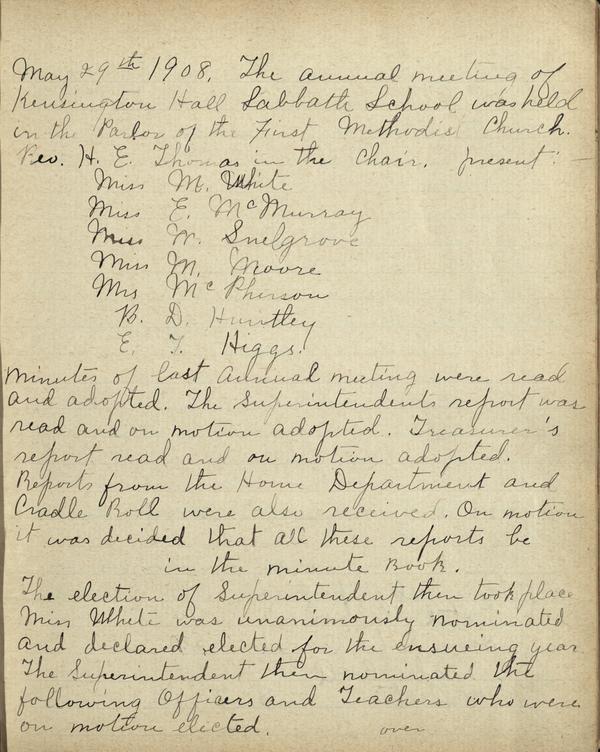 May 29th 1908. The annual meeting of
Kensington Hall Sabbath School was held
in the Parlor of the First Methodist Church.
Rev. H. E. Thomas in the chair. present: —
Miss M. White
Miss E. McMurray
Miss W. Snelgrove
Miss M. Moore
Mrs McPherson
B. D. Huntley
E. T. Higgs.
minutes of last annual meeting were read
and adopted. The Superintendents report was
read and on motion adopted. Treasurer's
report read and on motion adopted.
Reports from the Home Department and
Cradle Roll were also received. On motion
it was decided that all these reports be
in the minute Book.
The election of Superintendent then took place
Miss White was unanimously nominated
and declared elected for the ensueing year
The Superintendent then nominated the
following Officers and Teachers who were
on motion elected. over